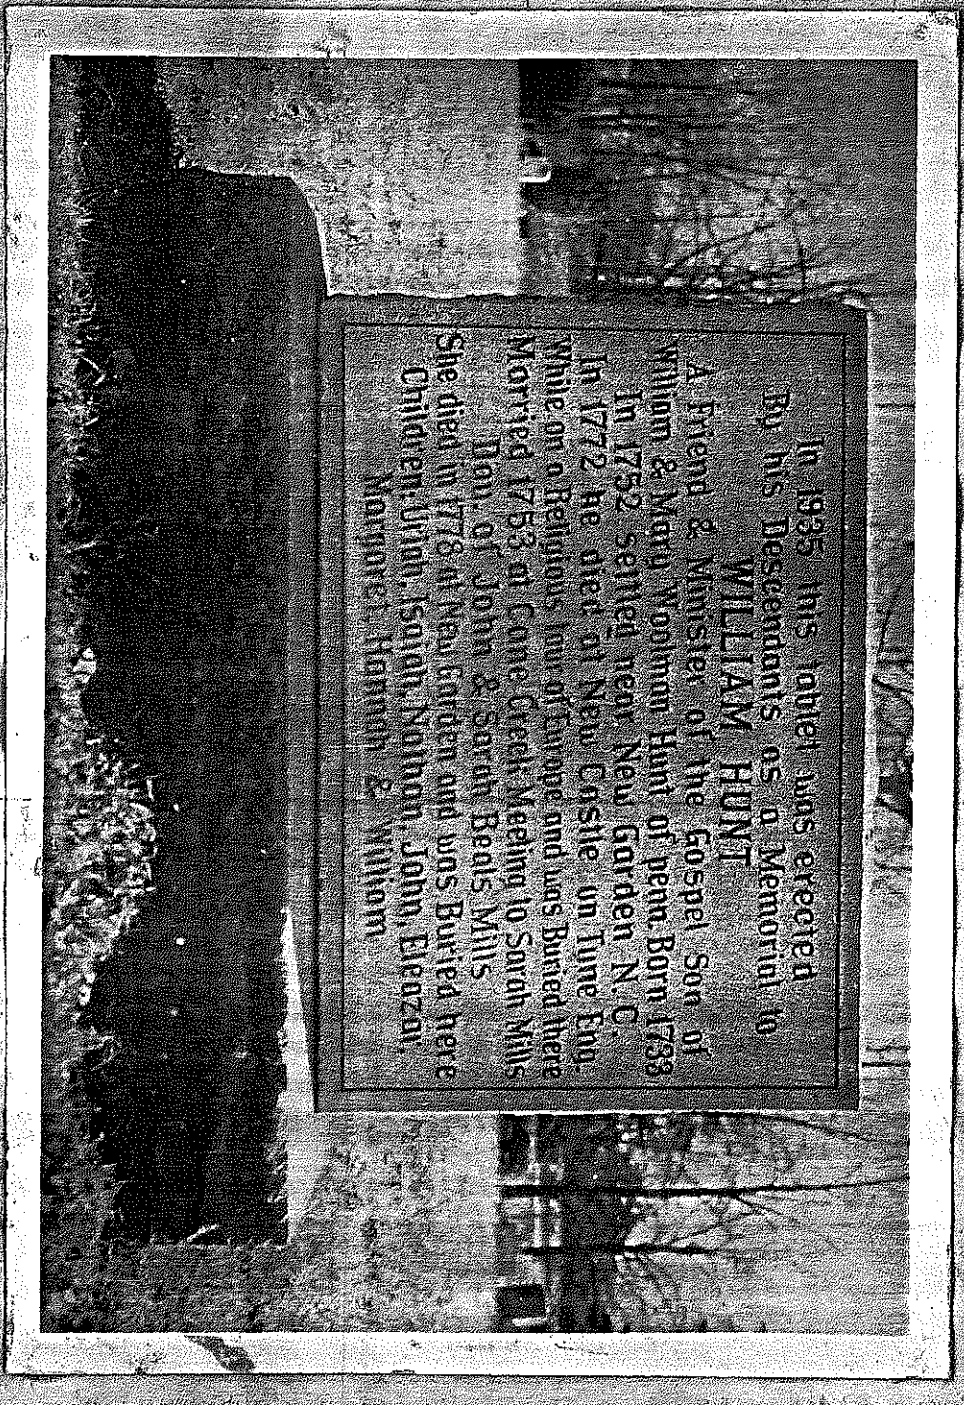 In 1935 this tablet was erected
By his Descendants as a Memorial to
WILLIAM HUNT
A Friend & Minister of the Gospel Son of
William & Mary Woolman Hunt of penn. Born 1733
In 1752 settled near New Garden N.C.
In 1772 he died at New Castle un Tune Eng.
While on a Religious tour of Europe and was Buried there
Married 1753 at Cane Creek Meeting to Sarah Mills
Dau. of John & Sarah Beals Mills
She died in 1778 at New Garden and was Buried here
Children: Uriah, Isaiah, Nathan, John, Eleazar,
Margaret, Hannah & William